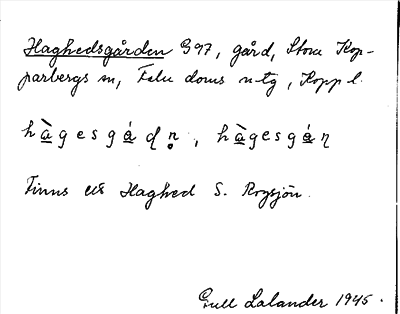 Haghedsgården G 97, gård, Stora Kop-
parbergs sn, Falu doms n-tg, Kopp l.
hàgesgádn, hàgesgán
Finns ett Haghed S. Rogsjön.
Gull Lalander 1945.